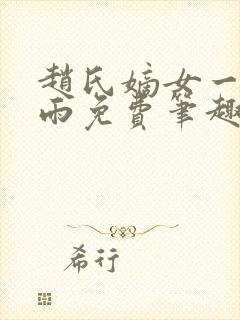 趙氏嫡女一
雨免費筆趣
希行